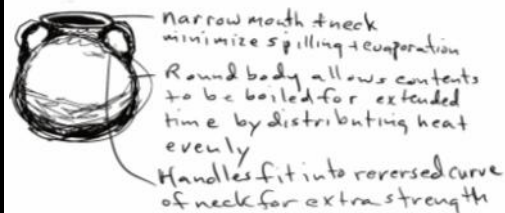 narrow mouth + neck
minimize spilling + evaporation
Round body allows contents
to be boiled for extended
time by distributing heat
evenly
Handles fit into reversed curve
of neck for extra strength